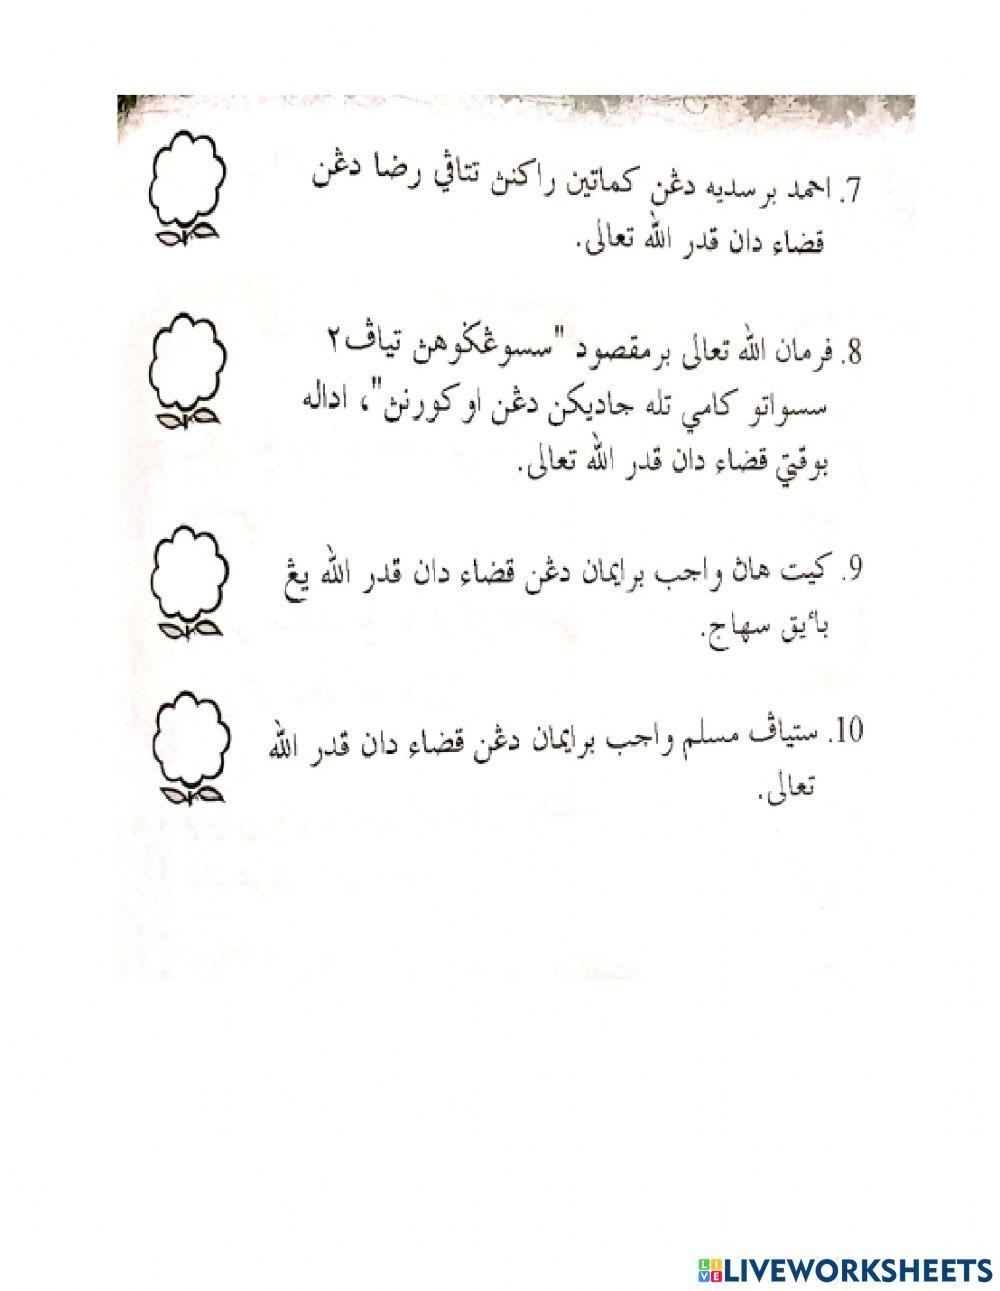 7. احمد برسديه دڠن كماتين راكنڽ تتاڤي رضا دڠن
قضاء دان قدر الله تعالى.
8. فرمان الله تعالى برمقصود "سسوڠݢوهڽ تياڤ٢
سسواتو كامي تله جاديكن دڠن اوكورنڽ"، اداله
بوقتي قضاء دان قدر الله تعالى.
9. كيت هاڽ واجب برايمان دڠن قضاء دان قدر الله يڠ
بائيق سهاج.
10. ستياڤ مسلم واجب برايمان دڠن قضاء دان قدر الله
تعالى.
LIVE LIVEWORKSHEETS